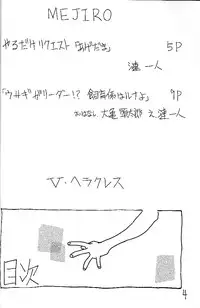 MEJIRO
やるだけリクエスト「あやだき」 5P
渣 一人
「ウサギがリーダー!? 飼育係はルナよ」 9P
おはなし 大亀 え 渣一人
V・ヘラクレス
目次
4